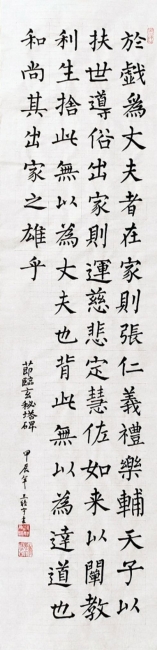 於戲為丈夫者在家則張仁義禮樂輔天子以
扶世導俗出家則運慈悲定慧佐如来以闡教
利生捨此無以為丈夫也背此無以為達道也
和尚其出家之雄乎
節臨玄秘塔碑
甲辰年